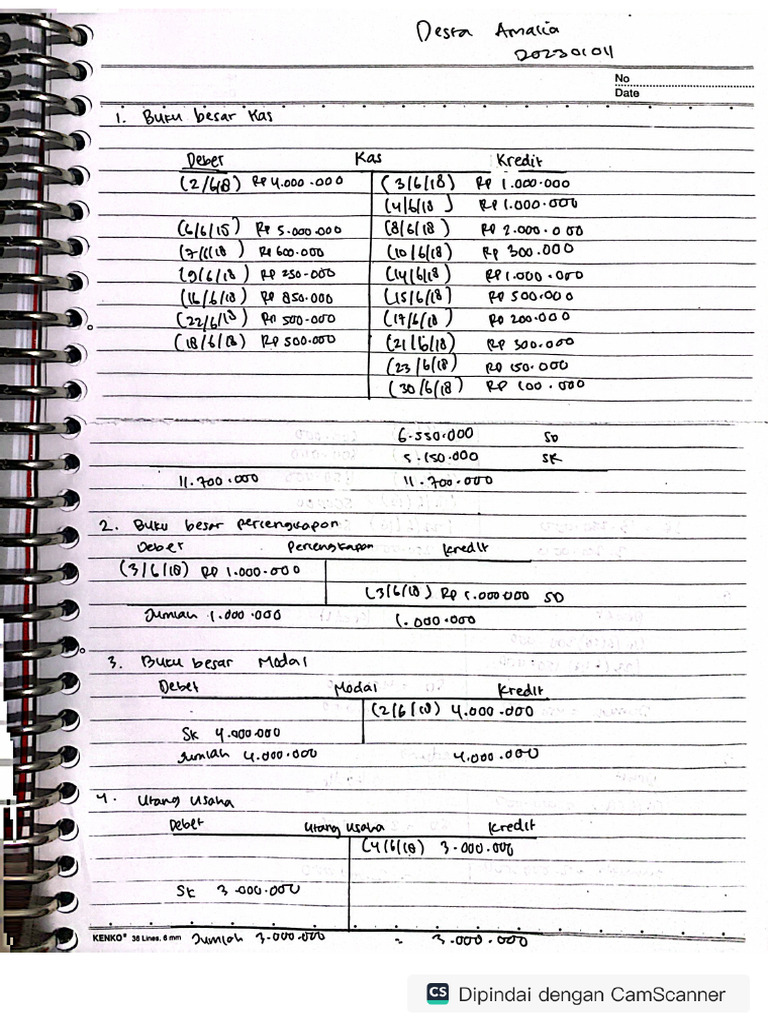 Desra Amalia
20230104
No
Date
1. Buku besar Kas
Debet Kas Kredit
(2/6/18) Rp 4.000.000 (3/6/18) Rp 1.000.000
(4/6/18) Rp 1.000.000
(6/6/18) Rp 5.000.000 (8/6/18) Rp 2.000.000
(7/6/18) Rp 600.000 (10/6/18) Rp 300.000
(9/6/18) Rp 250.000 (14/6/18) Rp 1.000.000
(16/6/18) Rp 850.000 (15/6/18) Rp 500.000
(22/6/18) Rp 500.000 (17/6/18) Rp 200.000
(18/6/18) Rp 500.000 (21/6/18) Rp 300.000
(23/6/18) Rp 150.000
(30/6/18) Rp 100.000
6.550.000 SD
5.150.000 SK
11.700.000 11.700.000
2. Buku besar Perlengkapan
Debet Perlengkapan Kredit
(3/6/18) Rp 1.000.000
(3/6/18) Rp 1.000.000 SD
Jumlah 1.000.000 1.000.000
3. Buku besar Modal
Debet Modal Kredit
(2/6/18) 4.000.000
SK 4.000.000
Jumlah 4.000.000 4.000.000
4. Utang Usaha
Debet Utang Usaha Kredit
(4/6/18) 3.000.000
SK 3.000.000
KENKO® 36 Lines, 6 mm Jumlah 3.000.000 = 3.000.000
CS Dipindai dengan CamScanner